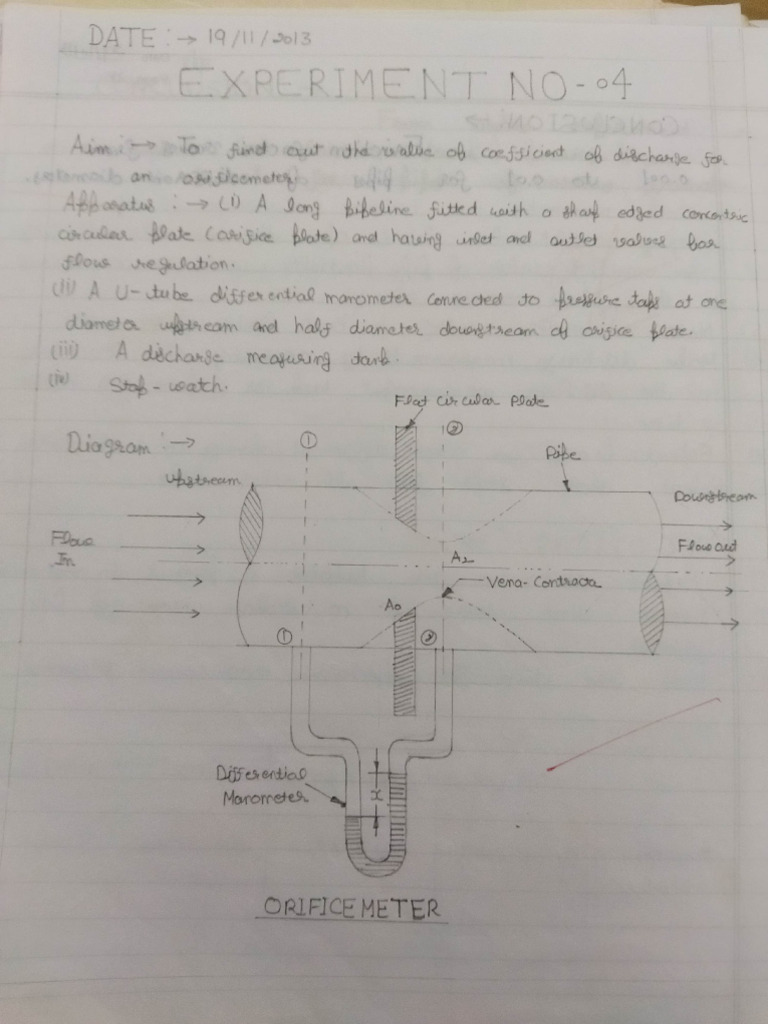 DATE :→ 19/11/2013
EXPERIMENT NO-04
Aim :→ To find out the value of coefficient of discharge for
an orificemeter.
Apparatus :→ (i) A long pipeline fitted with a sharp edged concentric
circular plate (orifice plate) and having inlet and outlet valves for
flow regulation.
(ii) A U-tube differential manometer connected to pressure taps at one
diameter upstream and half diameter downstream of orifice plate.
(iii) A discharge measuring tank.
(iv) Stop-watch.
Flat circular Plate
Diagram :→
①
②
Pipe
Upstream
Downstream
Flow
In
Flow out
A2
Vena-Contracta
A0
①
②
Differential
Manometer
x
ORIFICEMETER